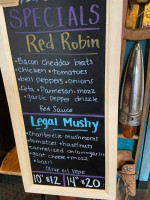 SPECIALS
Red Robin
• Bacon cheddar beets
chicken • tomatoes
bell peppers • onions
feta • Parmesan • mozz
• garlic pepper drizzle
Red Sauce
Legal Mushy
• Chanterelle mushrooms
tomatoes • hazelnuts
caramelized onion • garlic
goat cheese • mozz
• basil
Olive oil
10" $12 14" $20